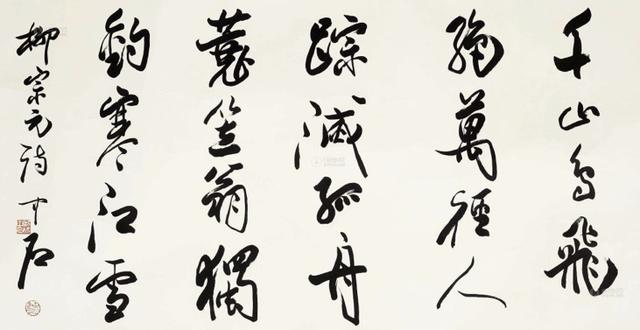 千山鳥飛
絶萬徑人
踪滅孤舟
蓑笠翁獨
釣寒江雪
柳宗元詩 中石